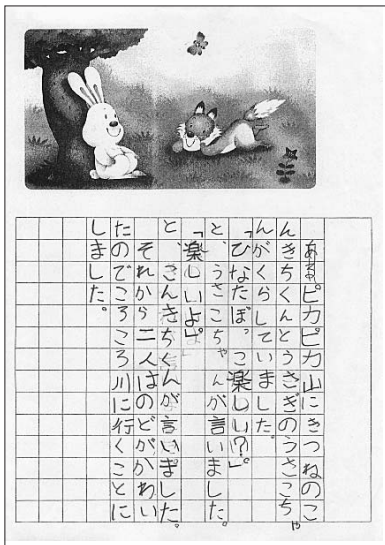 ああピカピカ山にきつねのこ
んきちくんとうさぎのうさこちゃ
んがくらしていました。
「ひなたぼっこ楽しい?」。
と、うさこちゃんが言いました。
「楽しいよ」
と、きんきちくんが言いました。
それから二人はのどがかわい
たのでころころ川に行くことに
しました。